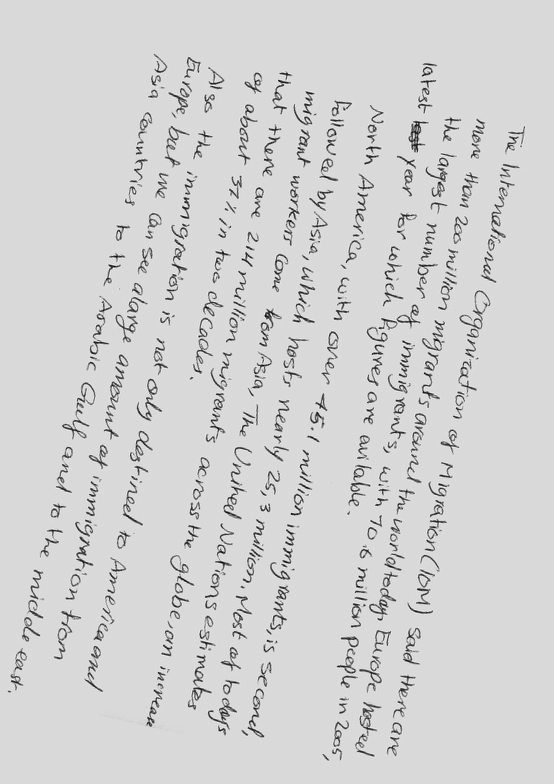 The International Organization of Migration (IOM) said there are
more than 200 million migrants around the world today. Europe hosted
the largest number of immigrants, with 70.6 million people in 2005,
latest year for which figures are available.
North America, with over 45.1 million immigrants, is second,
followed by Asia, which hosts nearly 25,3 million. Most of todays
migrant workers come from Asia, The United Nations estimates
that there are 214 million migrants across the globe, an increase
of about 37% in two decades.
Also the immigration is not only destined to America and
Europe, but we can see a large amount of immigration from
Asia countries to the Arabic Gulf and to the middle east.